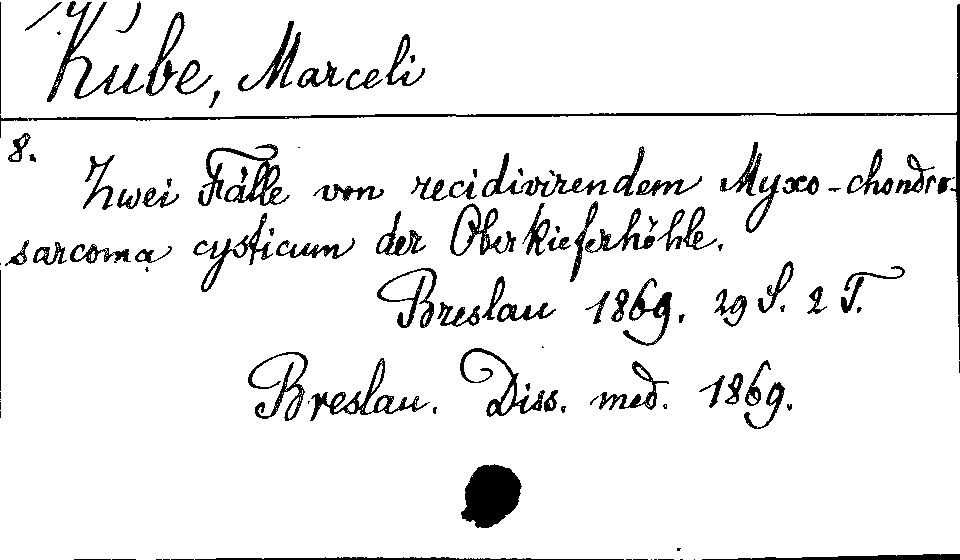 Kube, Marceli
8.
Zwei Fälle von recidivirendem Myxo-chondro-
sarcoma cysticum der Oberkieferhöhle.
Breslau 1869. 29 S. 2 T.
Breslau. Diss. med. 1869.